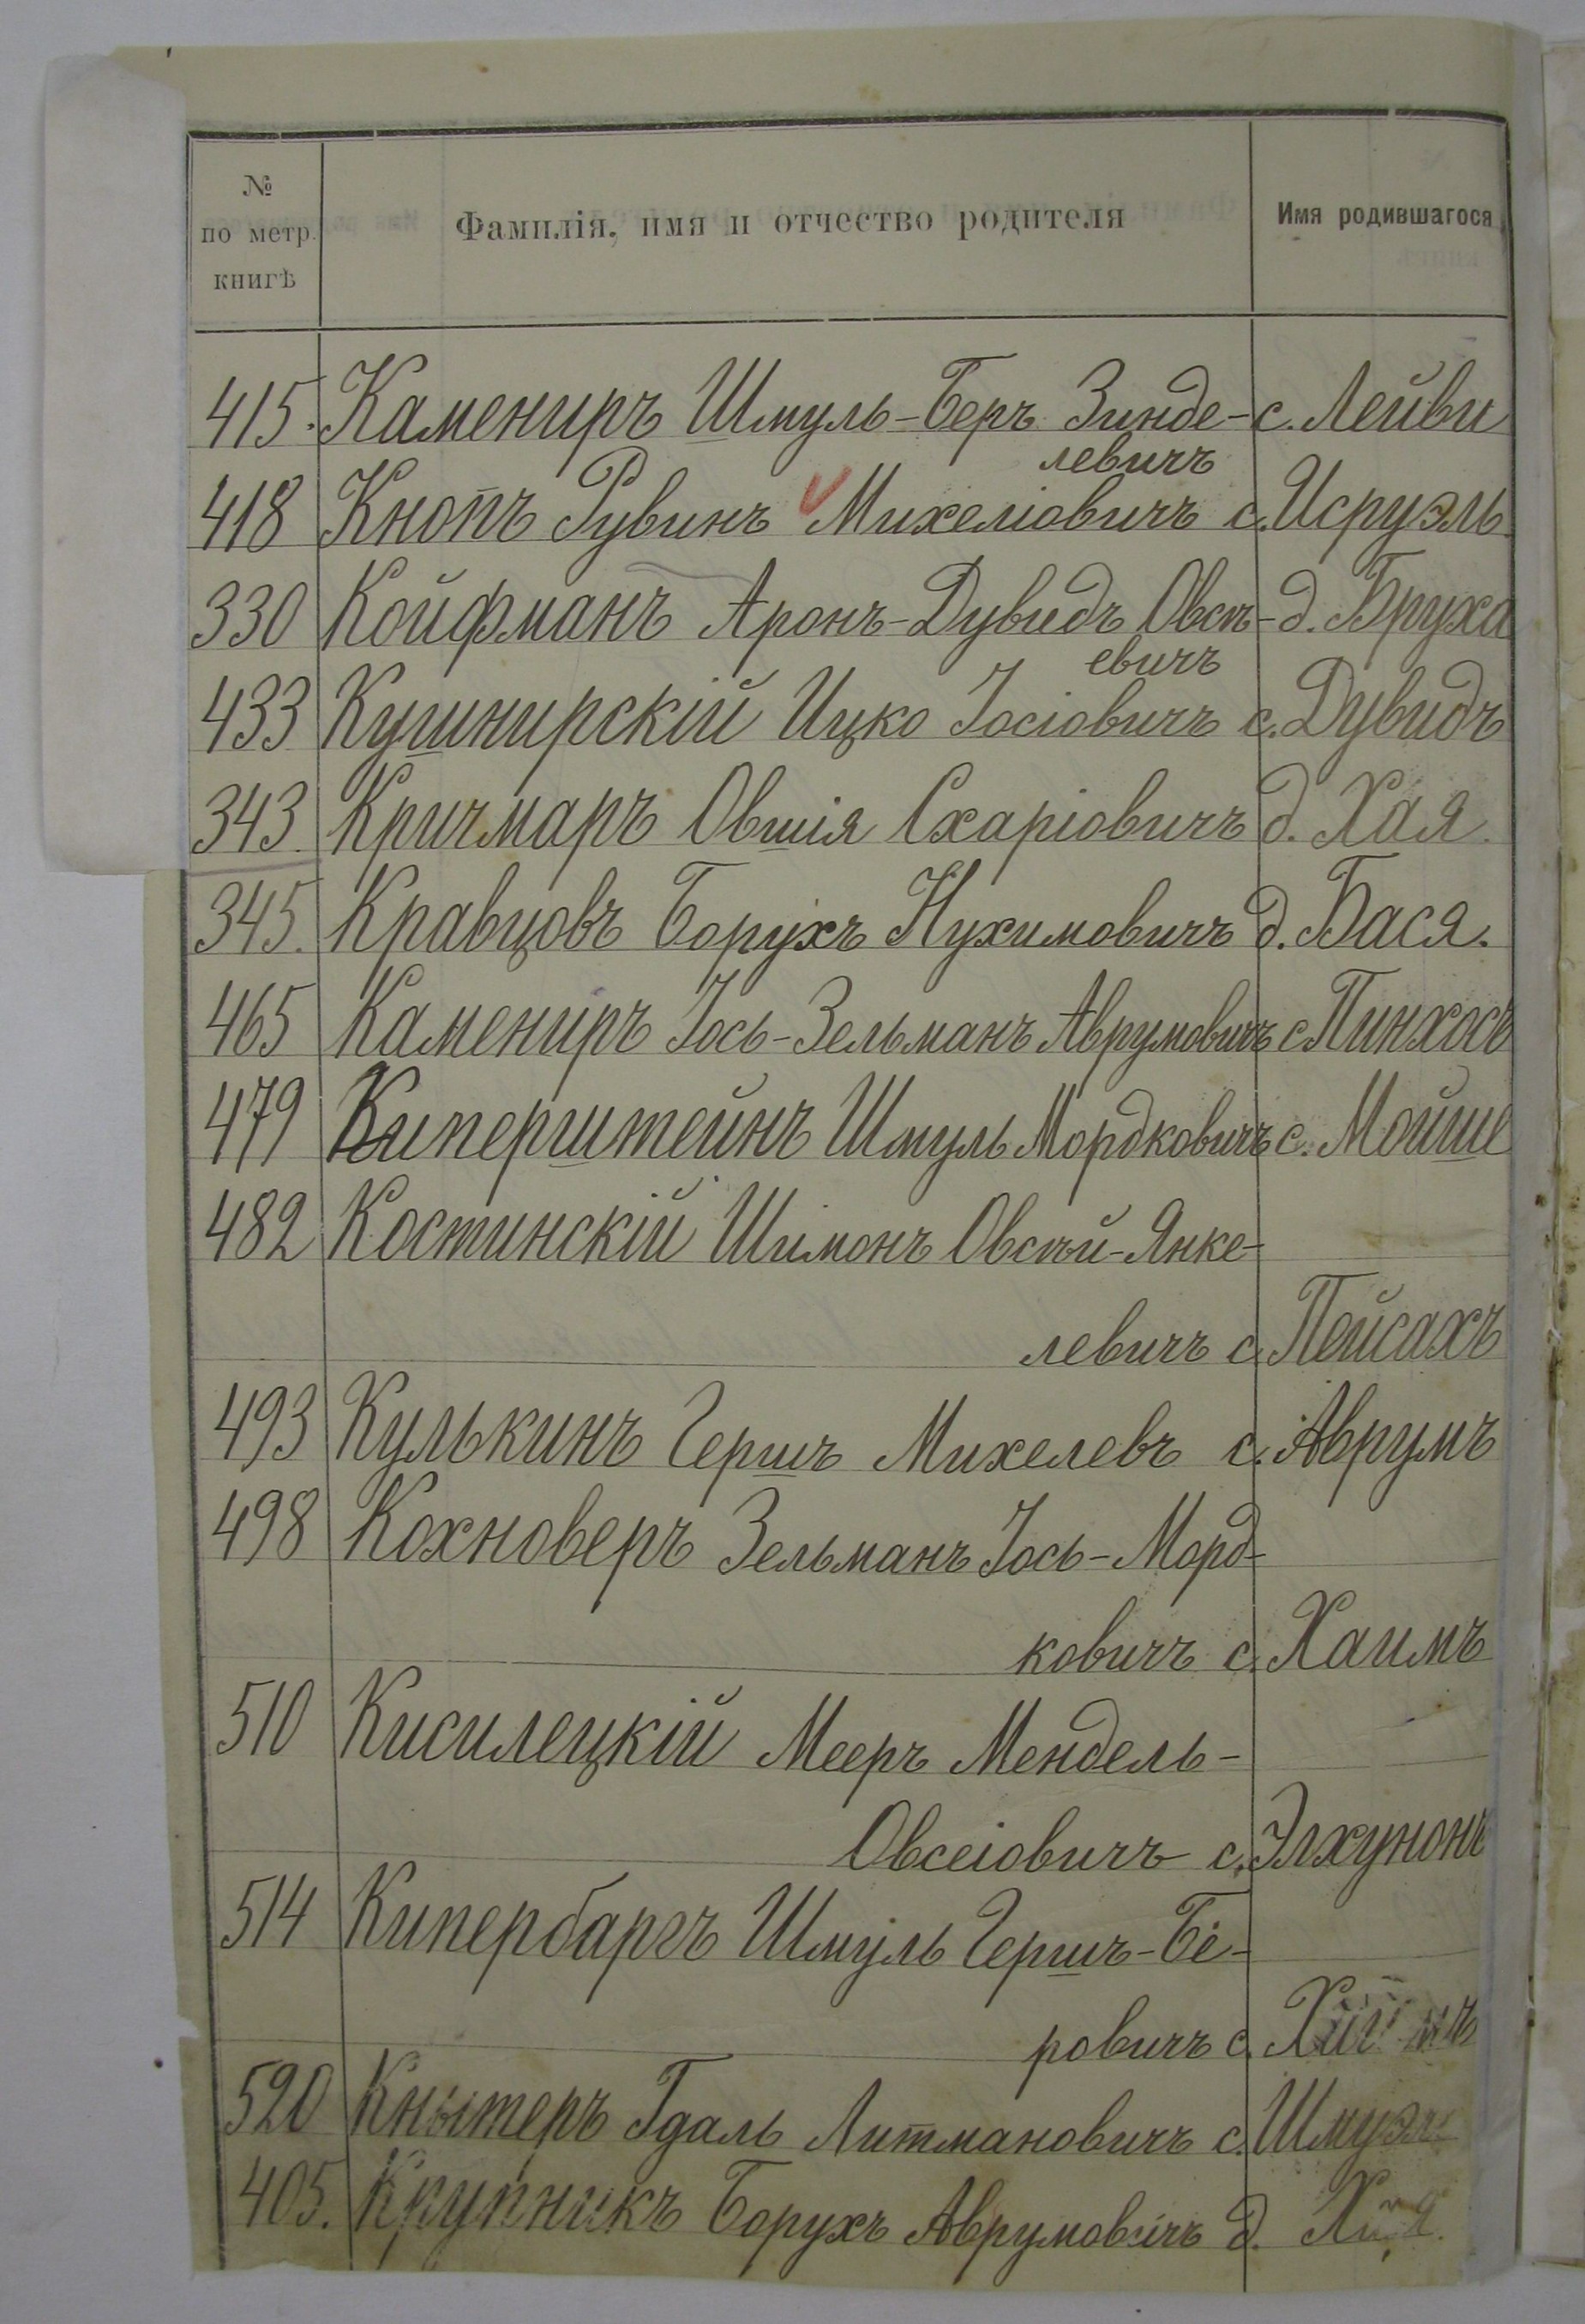 №
по метр.
книгѣ
Фамилія, имя и отчество родителя
Имя родившагося
415. Камениръ Шмуль-Беръ Зинде- с. Лейви
левичъ
418 Кнопъ Рувинъ Михеліовичъ с. Исруэль
330 Койфманъ Аронъ-Дувидъ Овсѣ- д. Бруха
евичъ
433 Кушнирскій Ицко Іосіовичъ с. Дувидъ
343. Кричмаръ Овшія Схаріовичъ д. Хая.
345. Кравцовъ Борухъ Нухимовичъ д. Бася.
465 Камениръ Іось-Зельманъ Аврумовичъ с Пинхосъ
479 Киперштейнъ Шмуль Мордковичъ с. Мойше
482 Костинскій Шимонъ Овсѣй-Янке-
левичъ с. Пейсахъ
493 Кулькинъ Гершъ Михелевъ с. Аврумъ
498 Кохноверъ Зельманъ Іось-Морд-
ковичъ с. Хаимъ
510 Кисилецкій Мееръ Мендель-
Овсеіовичъ с. Элхунонъ
514 Кипербаргъ Шмуль Гершъ-Бе-
ровичъ с.
520 Кнытеръ Гдаль Литмановичъ с. Шмуэль
405. Крупникъ Борухъ Аврумовичъ д.